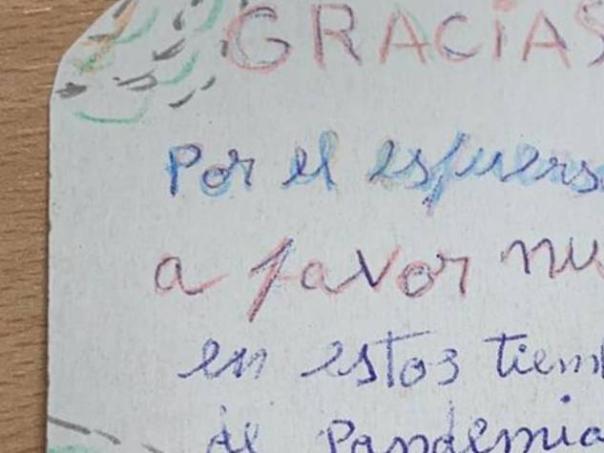 GRACIAS
Por el esfuers
a favor nu
en estos tiem
de Pandemia